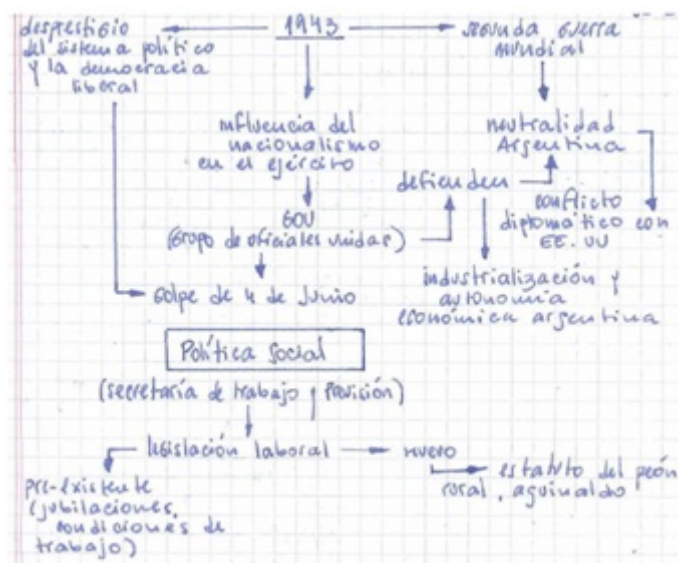 desprestigio
del sistema político
y la democracia
liberal
1943
segunda guerra
mundial
influencia del
nacionalismo
en el ejército
neutralidad
Argentina
defienden
conflicto
diplomático con
EE.UU
GOU
(Grupo de oficiales unidas)
golpe de 4 de Junio
industrialización y
autonomía
económica argentina
Política Social
(secretaría de trabajo y previsión)
legislación laboral
nuevo
estatuto del peón
rural, aguinaldo
pre-existente
(jubilaciones,
condiciones de
trabajo)